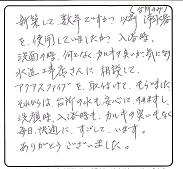 新築して数年ですがつ以前浄水器
を、使用していましたが入浴時、
洗面の時、何となくカルキの臭いが気になり
水道工事店さんに相談して、
アクアスファイブを取り付けてもらいました
それからは、台所の水も安心して飲めますし、
洗顔時、入浴時も、カルキの臭いもなく
毎日、快適に、すごしています。
ありがとうございました。